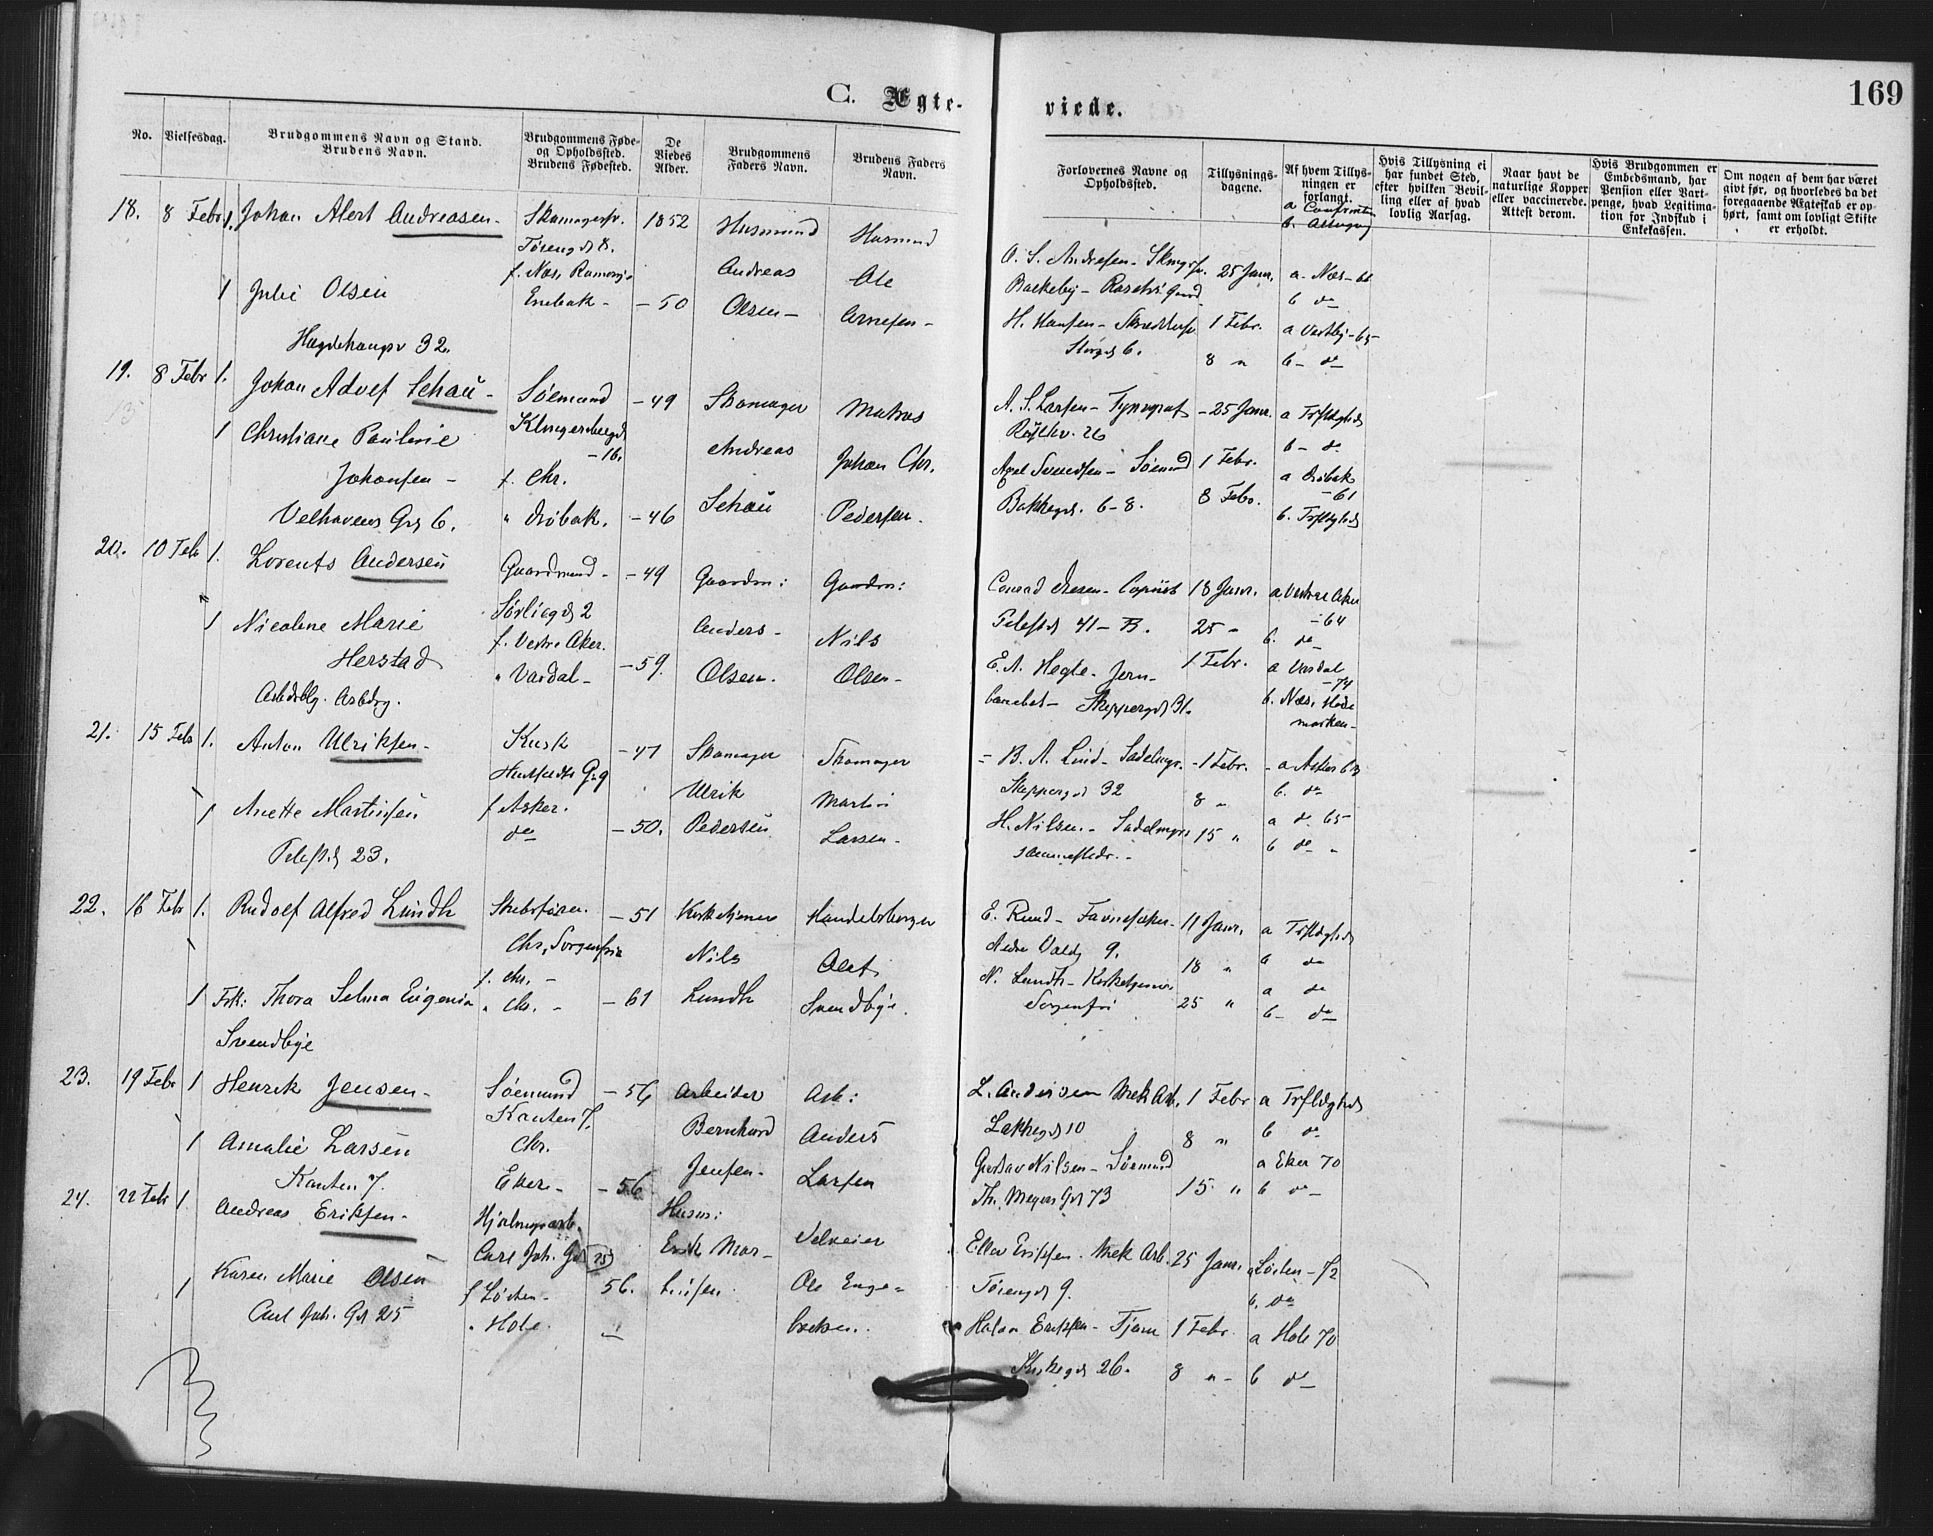 169
C. Ægte-
viede.
No.
Vielsesdag.
Brudgommens Navn og Stand.
Brudens Navn.
Brudgommens Føde-
og Opholdssted.
Brudens Fødested.
De
Viedes
Alder.
Brudgommens
Faders Navn.
Brudens Faders
Navn.
Forlovernes Navne og
Opholdssted.
Tillysnings-
dagene.
Af hvem Tillys-
ningen er
forlangt.
Hvis Tillysning ei
har fundet Sted,
efter hvilken Bevil-
ling eller af hvad
lovlig Aarsag.
Naar havt de
naturlige Kopper
eller vaccinerede.
Attest derom.
Hvis Brudgommen er
Embedsmand, har
Pension eller Vart-
penge, hvad Legitima-
tion for Indskud i
Enkekassen.
Om nogen af dem har været
givt før, og hvorledes da det
foregaaende Ægteskab er op-
hørt, samt om lovligt Skifte
er erholdt.
18. 8 Febr 1. Johan Alert Andreasen - Skomagersv. 1852 Husmand Husmand
Tøiengd 8.
f. Næs, Romerige Andreas Ole
1 Julie Olsen Enebak - - 50 Olsen - Arnesen -
Hægdehaugsv 32.
O. S. Andresen - 25 Janr. a - Næs - 66
b do
H. Hansen - 1 Febr. a Vestby - 65
Storgd 6. 8 " b - do
19. 8 Febr 1. Johan Advef Schau - Søemand - 49 Skomager Matros
Klingenberggd
- 16.
1 Christiane Pauline Andreas Johan Chr.
Johansen - f. Chr.
Velhavens Gd 6. " Drøbak. - 46 Schau Pedersen.
A. S. Larsen - Typograf - 25 Janr. a Trfldghds
b - do
Axel Svendsen - Søemd 1 Febr. a Drøbak
- 61
Bakkegd. 6-8. 8 Febr. b. Trfldghds
20. 10 Feb 1. Lorents Andersen Gaardmand - - 49 Gaardm: Gaardm:
Sørliegd 2
1 Nicoline Marie f. Vestre Aker. Anders - Nils
Herstad " Vardal - - 59. Olsen. Olsen -
Arbdsblg. Arbdrg.
Conrad Olesen - Copiist 18 Janr. a Vestre Aker
- 64
Pilestd 41 - B. 25 - b. do
E. A. Hegle - Jern- 1 Febr. a Vardal
- 74
Skippergd 31. b. Næs, Hede
marken -
21. 15 Feb 1. Anton Ulriksen - Kusk - 47 Skomager Skomager
Ulrik Martin
1 Anette Martinsen f Asker.
do - 50. Pedersen Larsen -
Pilestd 23.
B. A. Lind - Sadelmgr. - 1 Febr. - a Asker 63
Skippergd 32 8 " b. do
H. Nilsen - Sadelmgr 15 " a do 65
sammestedr. - b do "
22. 16 Feb 1. Rudolf Alfred Lundh Skibsfører. - 51 Kirketjener Handelsborger
Chr, Sorgenfrie Nils Olof
f. Chr. -
1 Frk: Thora Selma Eugenia " Chr. - - 61 Lundh Svendbye.
Svendbye
E. Ruud - 11 Janr. a Trfldghds
Nedre Voldg 9. 18 " b do
N. Lundh - Kirketjener a do
Sorgenfri 25 " b - do
23. 19 Febr 1 Henrik Jensen - Søemand - 56 Arbeider Arb:
Kanten 7.
1 Amalie Larsen Chr. Bernhard Anders
Kanten 7. Eker - - 56 Jensen - Larsen
L. Andersen Mek Arb. 1 Febr a Trfldghds
Lakkegd 10 8 " b do
Gustav Nilsen - Søemand a Eker 70
Th. Meyers Gd 73 15 " b do -
24. 22 Feb 1. Andreas Eriksen - Husm:
Carl Joh. Gd 25 Erik Mor-
1 Karen Marie Olsen f Løiten - 56. tinsen. Ole Enge-
Carl Joh. Gd 25 " Hole. bretsen.
Eriksen. Mek Arb. 25 Janr. a Løiten - 72
Tøiengd 9. b. do
Halvor Eriksen - Tjener 1 Febr. a Hole 70
Kirkegd 26. 8 " - b do